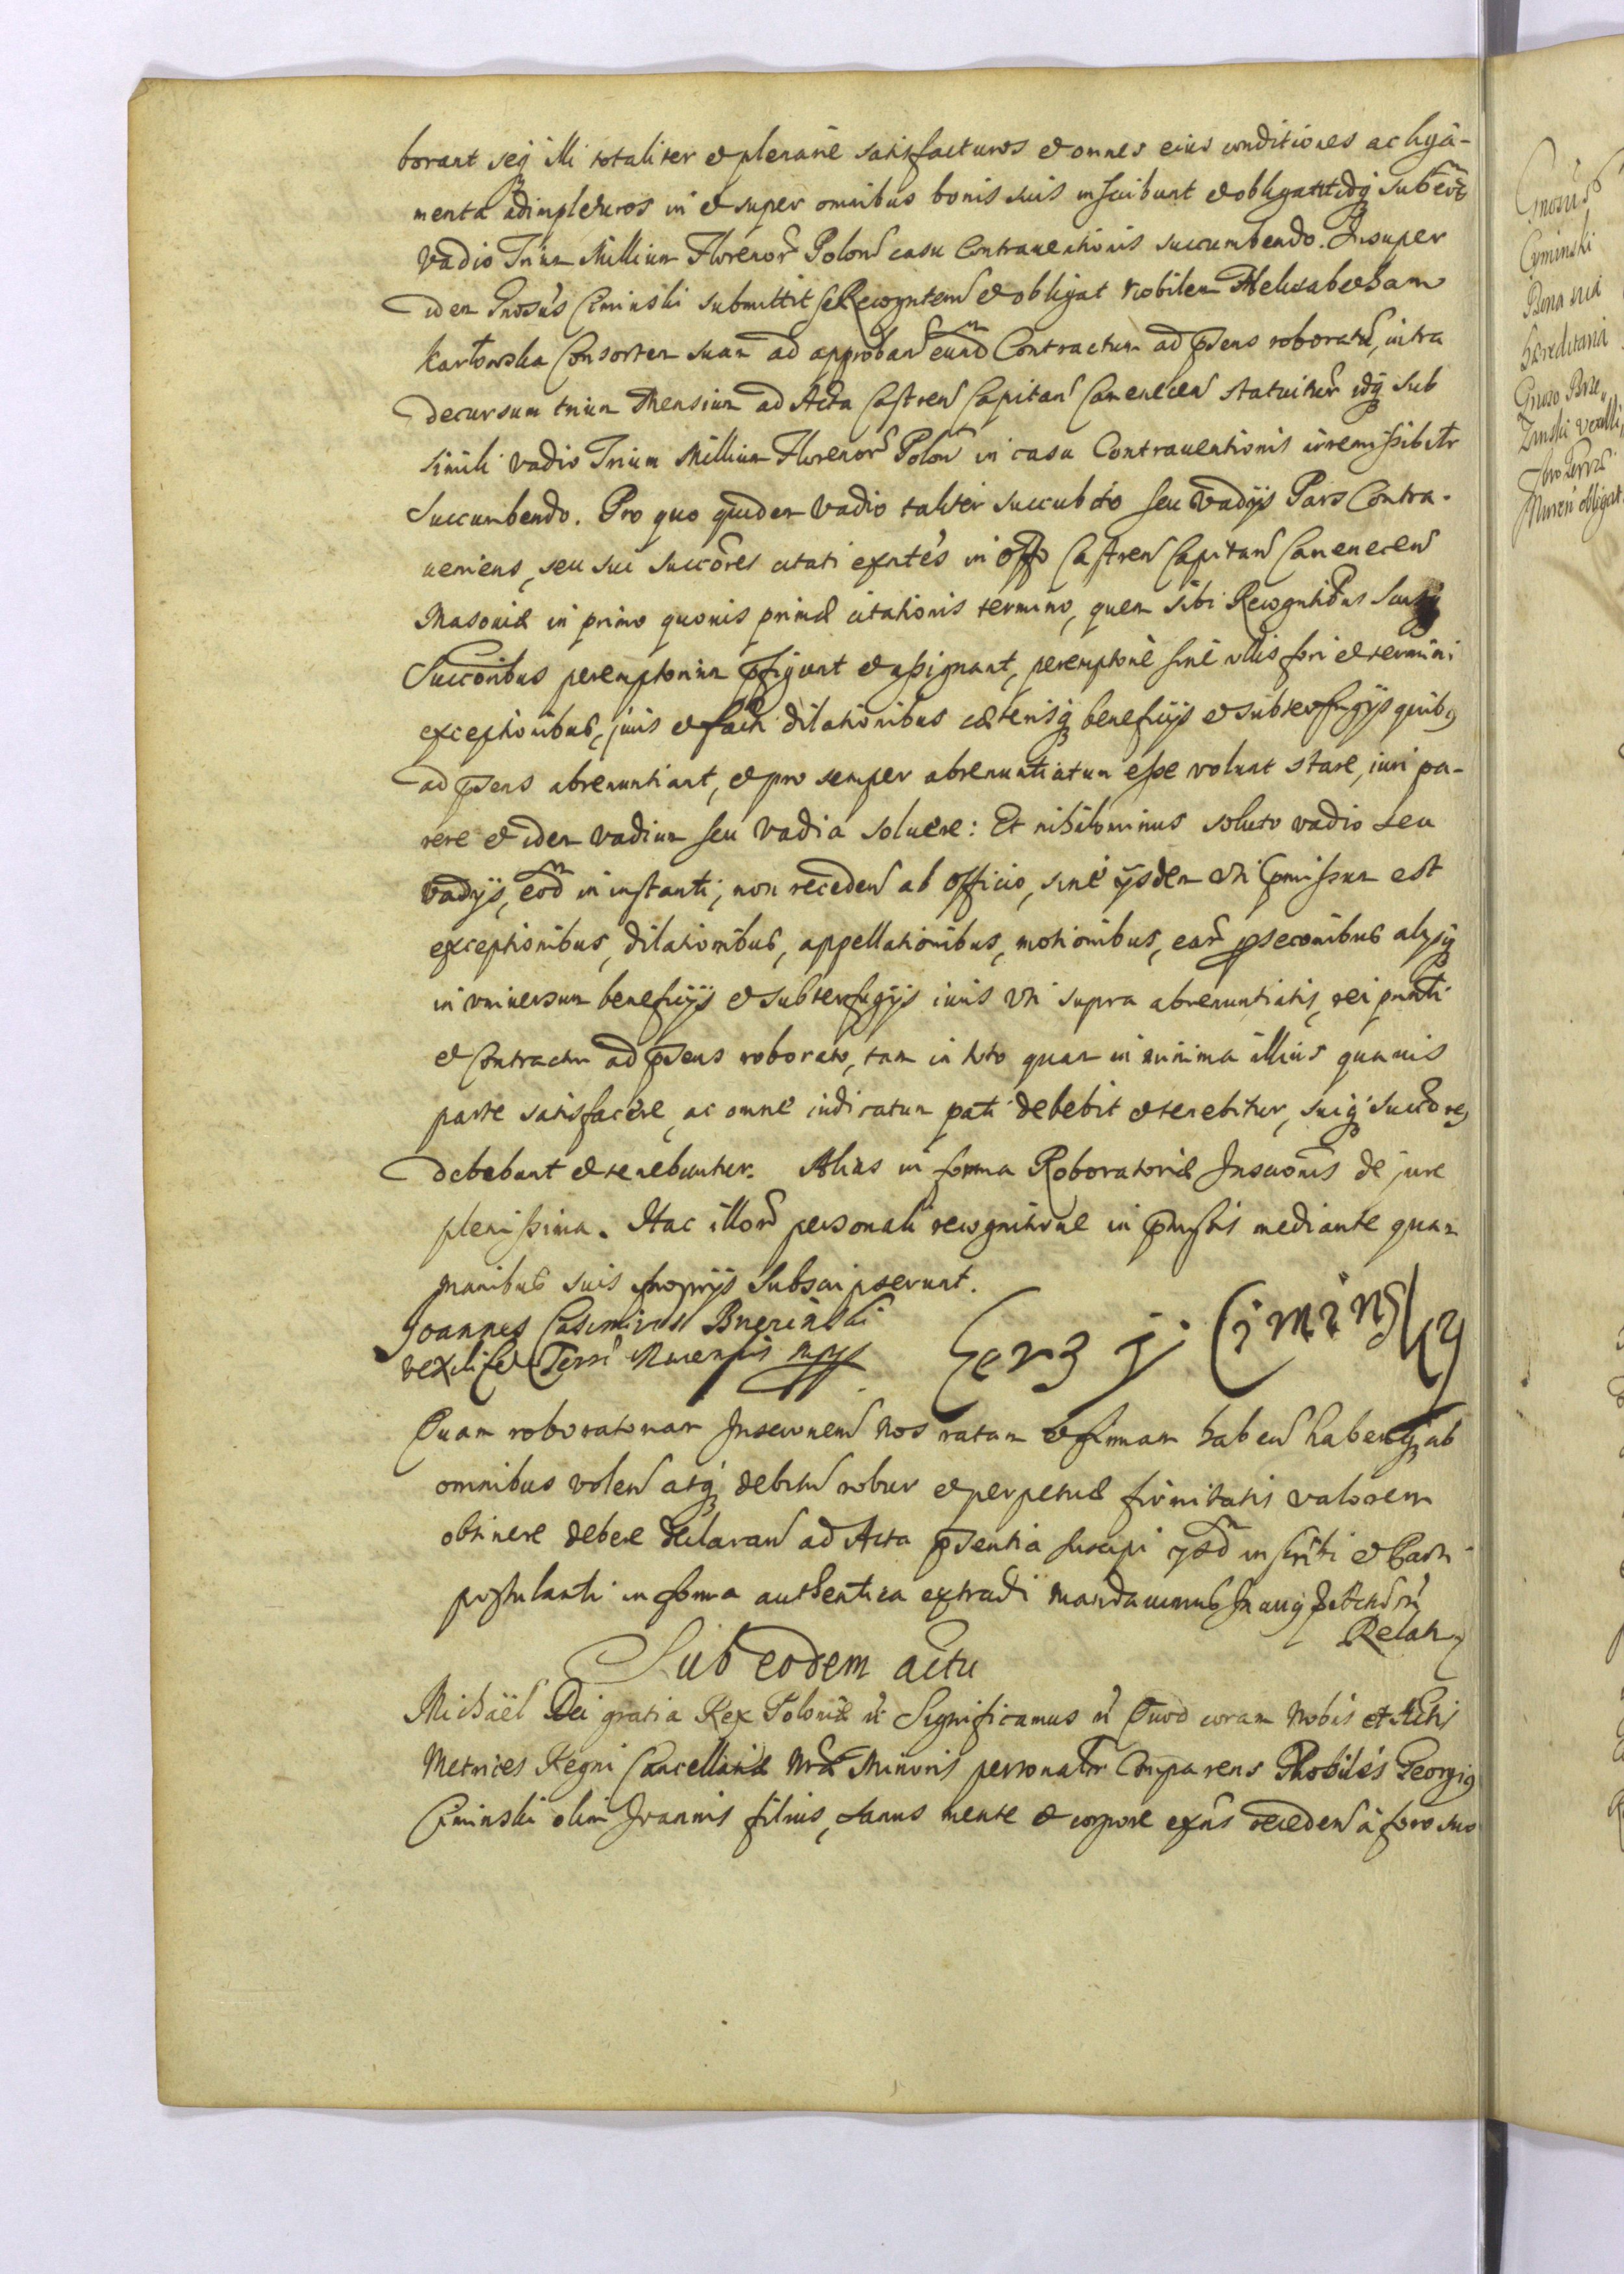 borant seq illi totaliter et plenarie satisfacturos et omnes eius conditiones ac liga-
menta adimpleturos in et super omnibus bonis suis inscribunt et obligant idq sub
vadio Trium Millium Florenor Polon casu Contrauentionis succumbendo. Insuper
idem Gnosus Ciminski submittit se Recognten et obligat Nobilem Helisabetham
Karłowska Consortem suam ad approban eund Contractum ad psens roboratu, intra
decursum trium Mensium ad Acta Castren Capitan Camenecen statuitur idq sub
simili vadio Trium Millium Florenor Polon in casu Contrauentionis irremissibilr
Succumbendo. Pro quo quidem vadio taliter succubito seu vadijs Pars Contra-
ueniens, seu sui succores citati exntes in offo Castren Capitan Camenecen
Masouiæ in primo quouis primæ citationis termino, quem sibi
Succoribus peremptorium pfigunt et assignant, peremptorie sine ullis fori et termini
exceptionibus, iuris et facti dilationibus cæterisq beneficijs et subterfugijs quibq
ad psens abrenuntiant, et pro semper abrenuntiatum esse volunt stare, iuri pa-
rere et idem vadium seu vadia soluere: Et nihilominus soluto vadio seu
vadijs, eod in instanti, non receden ab officio, sine ijsdem vti pmissum est
exceptionibus, dilationibus, appellationibus, motionibus, ear pseconibus alijsq
in vniuersum beneficijs et subterfugijs iuris vti supra abrenuntiatis, rei pnnti
et Contractui ad psens roborato, tam in toto quam in minima illius quauis
parte satisfacere, ac omne iudicatum pati debebit et tenebitur, suiq succores
debebunt et tenebuntur. Alias in forma Roboratoriæ Inscronis de jure
plenissima. Hac illor personali recognitione in pmissis mediante quam
manibus suis proprijs subscripserunt.
Joannes Casimirus Brzezinski
vexilifer Terræ Nurensis mpp
Jerzy Ciminsky
Quam roboratoriam Inscronem Nos ratam et firmam haben haberiq ab
omnibus volen atq debitu robur et perpetuæ firmitatis valorem
obtinere debere declaran ad Acta psentia suscipi ijsd inscribi et Parti
postulanti in forma authentica extradi mandauimus
Relat
Sub eodem actu
Michaël Dei gratia Rex Poloniæ &c Significamus &c Quod coram Nobis et Actis
Metrices Regni Cancellariæ Nræ Minoris personalr Comparens Nobilis Georgiq
Ciminski olim Joannis filius, sanus mente et corpore exns receden à foro suo
Gnosus
Cyminski
Bona sua
hæreditaria
Gnoso Brze-
zinski vexilli
Nuren obligat